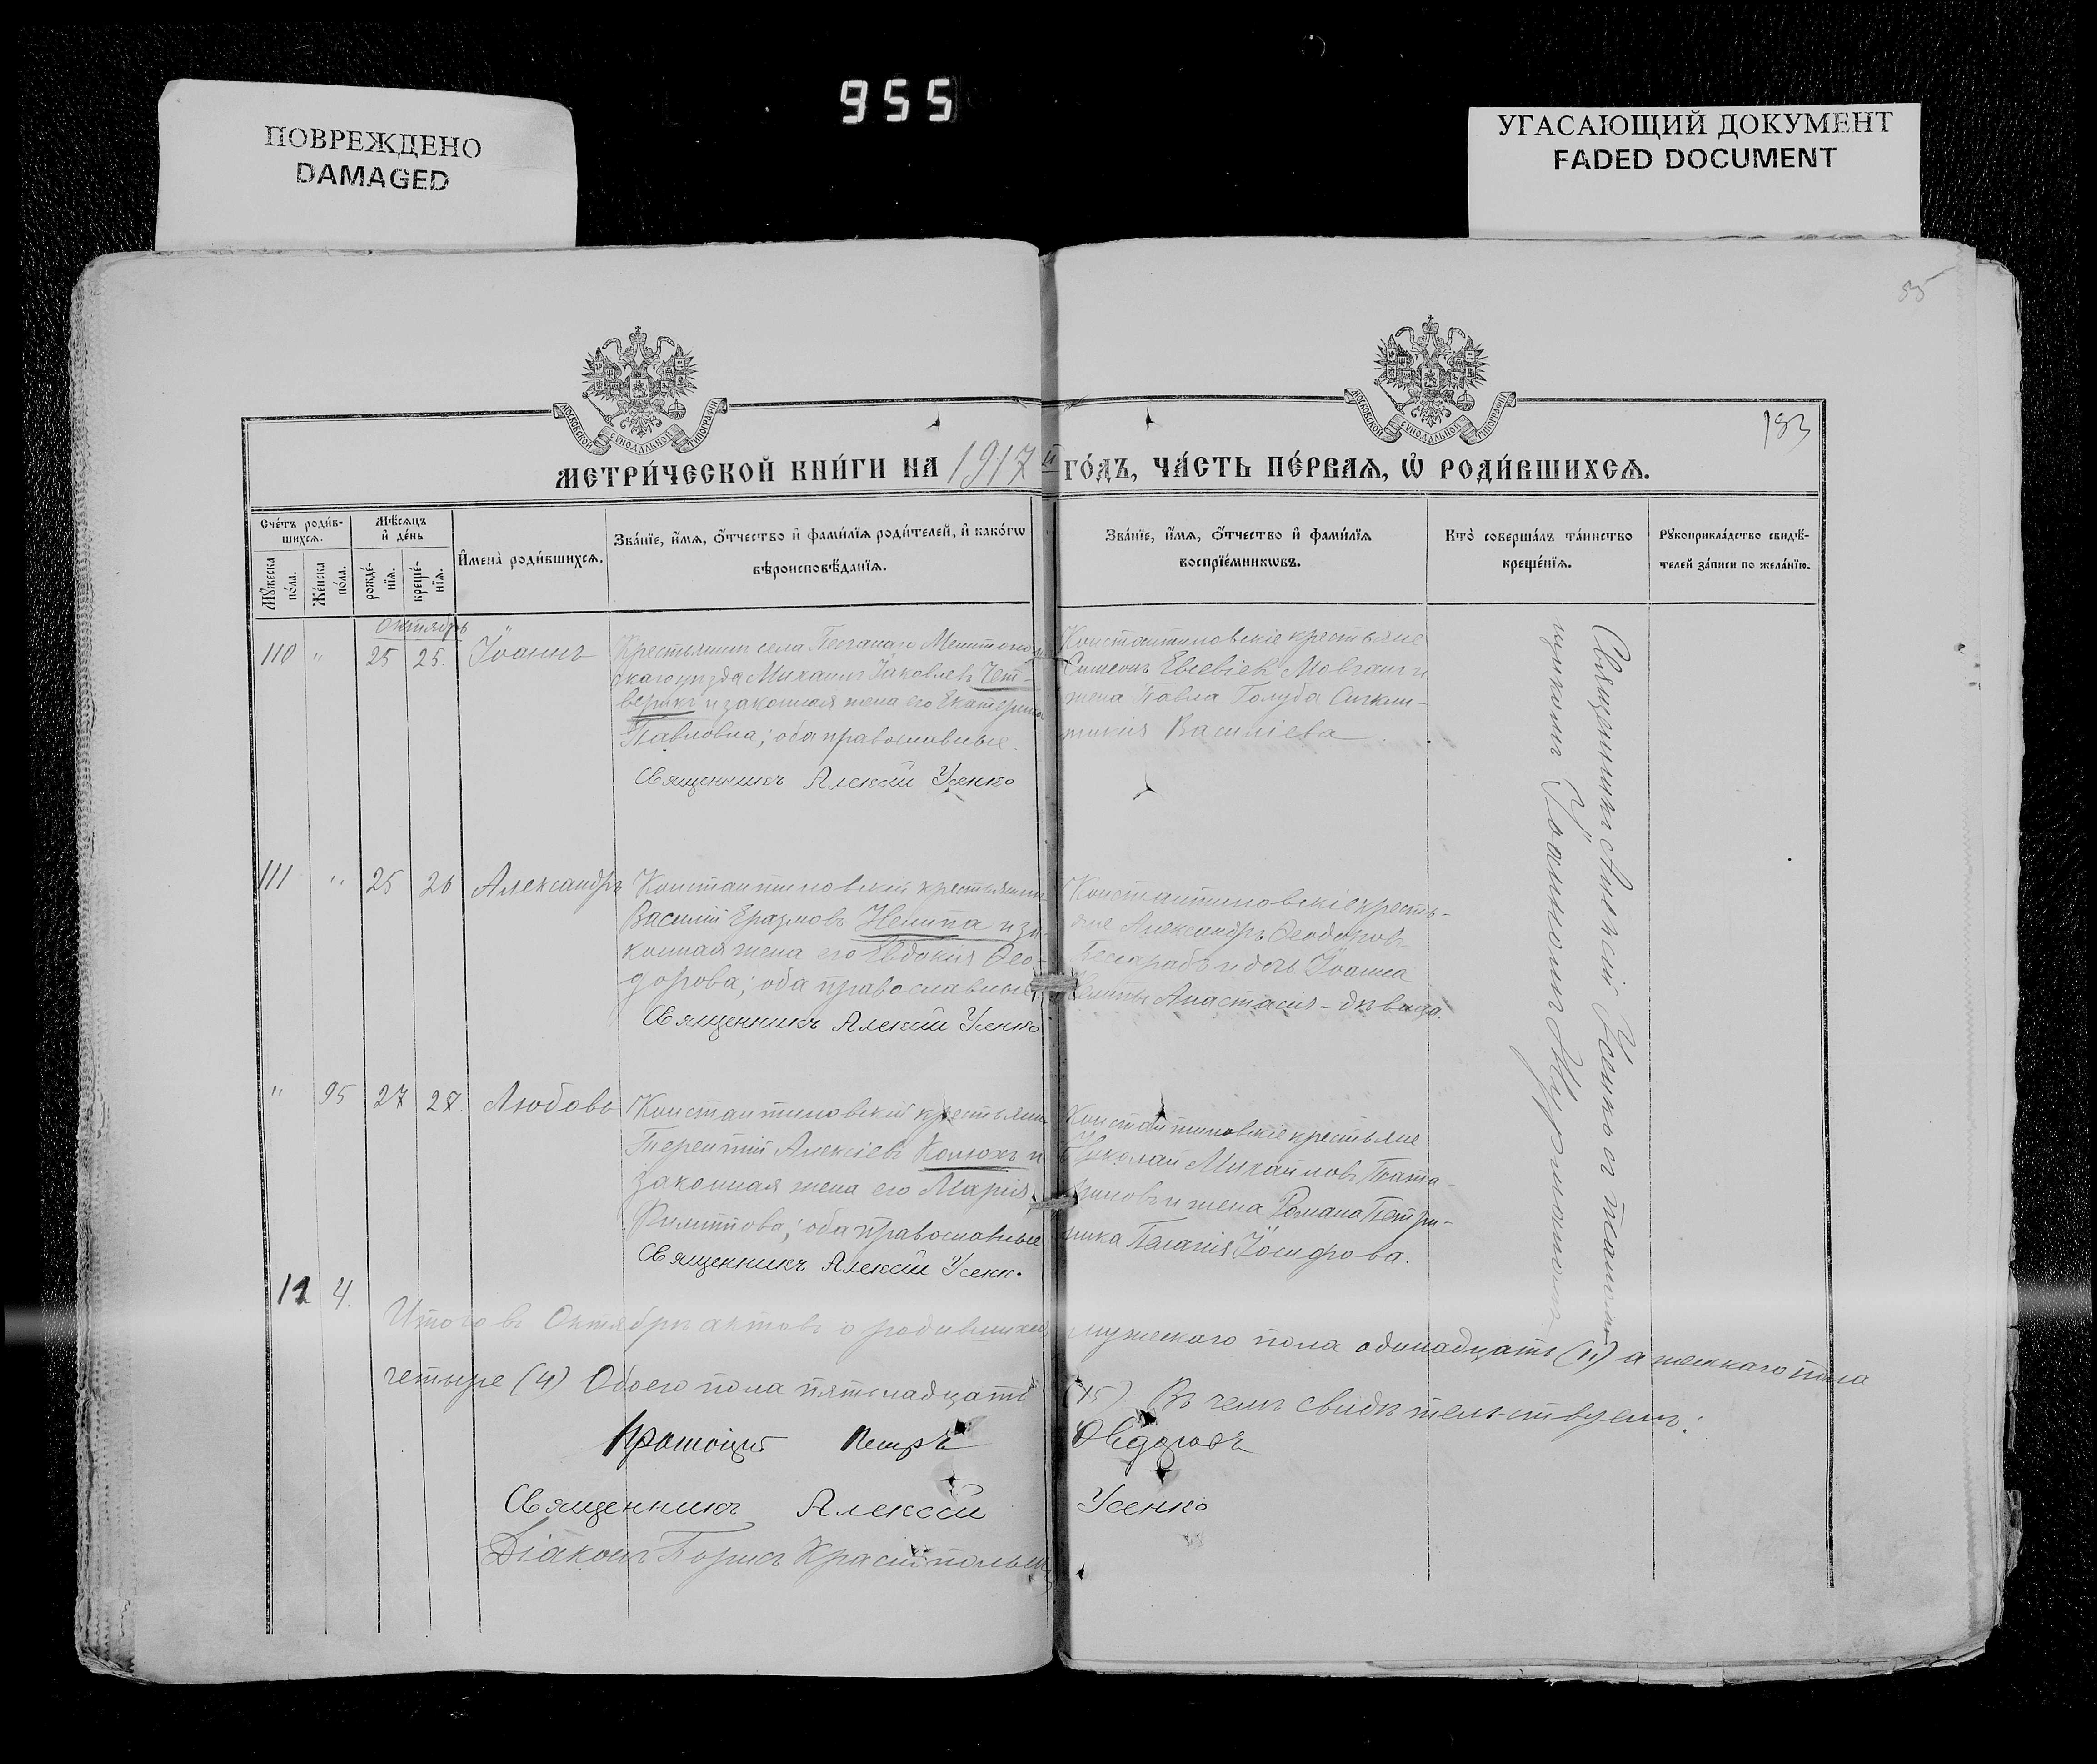 955
ПОВРЕЖДЕНО
DAMAGED
УГАСАЮЩИЙ ДОКУМЕНТ
FADED DOCUMENT
55
183
МОСКОВСКОЙ СѴНОДАЛЬНОЙ ТИПОГРАФІИ
МОСКОВСКОЙ СѴНОДАЛЬНОЙ ТИПОГРАФІИ
МЕТРИ́ЧЕСКОЙ КНИ́ГИ НА 1917 й ГО́ДЪ, ЧА́СТЬ ПЕ́РВАѦ, Ѡ҆ РОДИ́ВШИХСѦ.
Сче́тъ роди́в-
шихсѧ.
Мꙋ́жеска по́ла.
Же́нска по́ла.
Мѣ́сѧцъ и҆ де́нь
рожде́-нїѧ.
креще́-нїѧ.
И҆мена̀ роди́вшихсѧ.
Зва́нїе, и҆́мѧ, ѻ҆́тчество и҆ фами́лїѧ роди́телей, и҆ како́гѡ
вѣроисповѣ́данїѧ.
Зва́нїе, и҆́мѧ, ѻ҆́тчество и҆ фами́лїѧ
воспрїе́мникѡвъ.
Кто̀ соверша́лъ та́инство
креще́нїѧ.
Рꙋкоприкла́дство свидѣ́-
телей за́писи по жела́нїю.
Октябрь
110 " 25 25. Іоаннъ
Крестьянинъ села Песчанаго Мелитополь
скаго уѣзда Михаилъ Іаковлевъ Чет-
верикъ и законная жена его Екатерина
Павловна; оба православные.
Священникъ Алексій Усенко
Константиновскіе крестьяне
Симеонъ Евсевіев Мовчанъ и
жена Павла Голуба Синкли-
тикія Василіева.
111 " 25 26 Александръ
Константиновскій крестьянинъ
Василій Еразмовъ Нелипа и за-
конная жена его Евдокія Ѳео-
дорова; оба православные.
Священникъ Алексій Усенко
Константиновскіе кресть-
яне Александръ Ѳеодоровъ
Бессарабъ и дочь Іоанна
Нелипы Анастасія - дѣвица.
" 95 27 28. Любовь
Константиновскій крестьянинъ
Терентій Алексіевъ Колюхъ и
законная жена его Марія
Филиппова; оба православные
Священникъ Алексій Усенко
Константиновскіе крестьяне
Николай Михайловъ Плато-
новъ и жена Романа Петри-
Пелагія Іосифова.
Священникъ Алексій Усенко съ псалом-
щикомъ Іоанномъ
11 4.
Итого въ Октябрѣ актовъ о родившихся мужескаго пола одинадцать (11) а женскаго пола
четыре (4) Обоего пола пятьнадцать (15) Въ чемъ свидѣтельствуемъ:
Протоіерей Петръ Ѳедоровъ
Священникъ Алексій Усенко
Діаконъ Борисъ Краснопольскій